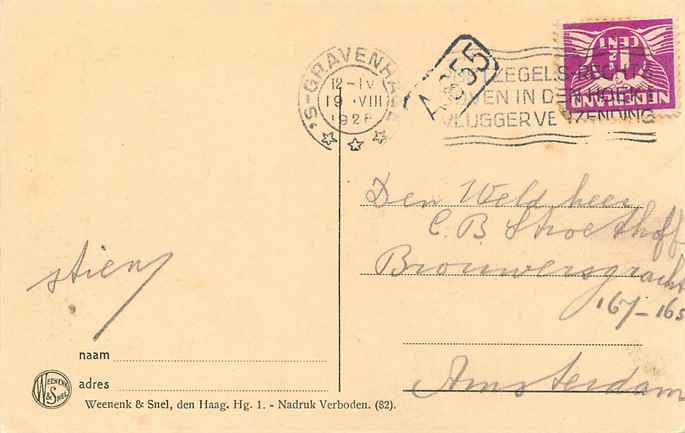 'S-GRAVENHAGE
12-IV
19 .VIII
1926
A 355
POSTZEGELS RECHTS
BOVEN IN DEN HOEK =
VLUGGER VERZENDING
CENT
NEDERLAND
Den Weld heer
C. B. Stroethoff
Brouwersgracht
167-165
Amsterdam
stien
naam
adres
WEENENK & SNEL
Weenenk & Snel, den Haag. Hg. 1. - Nadruk Verboden. (82).